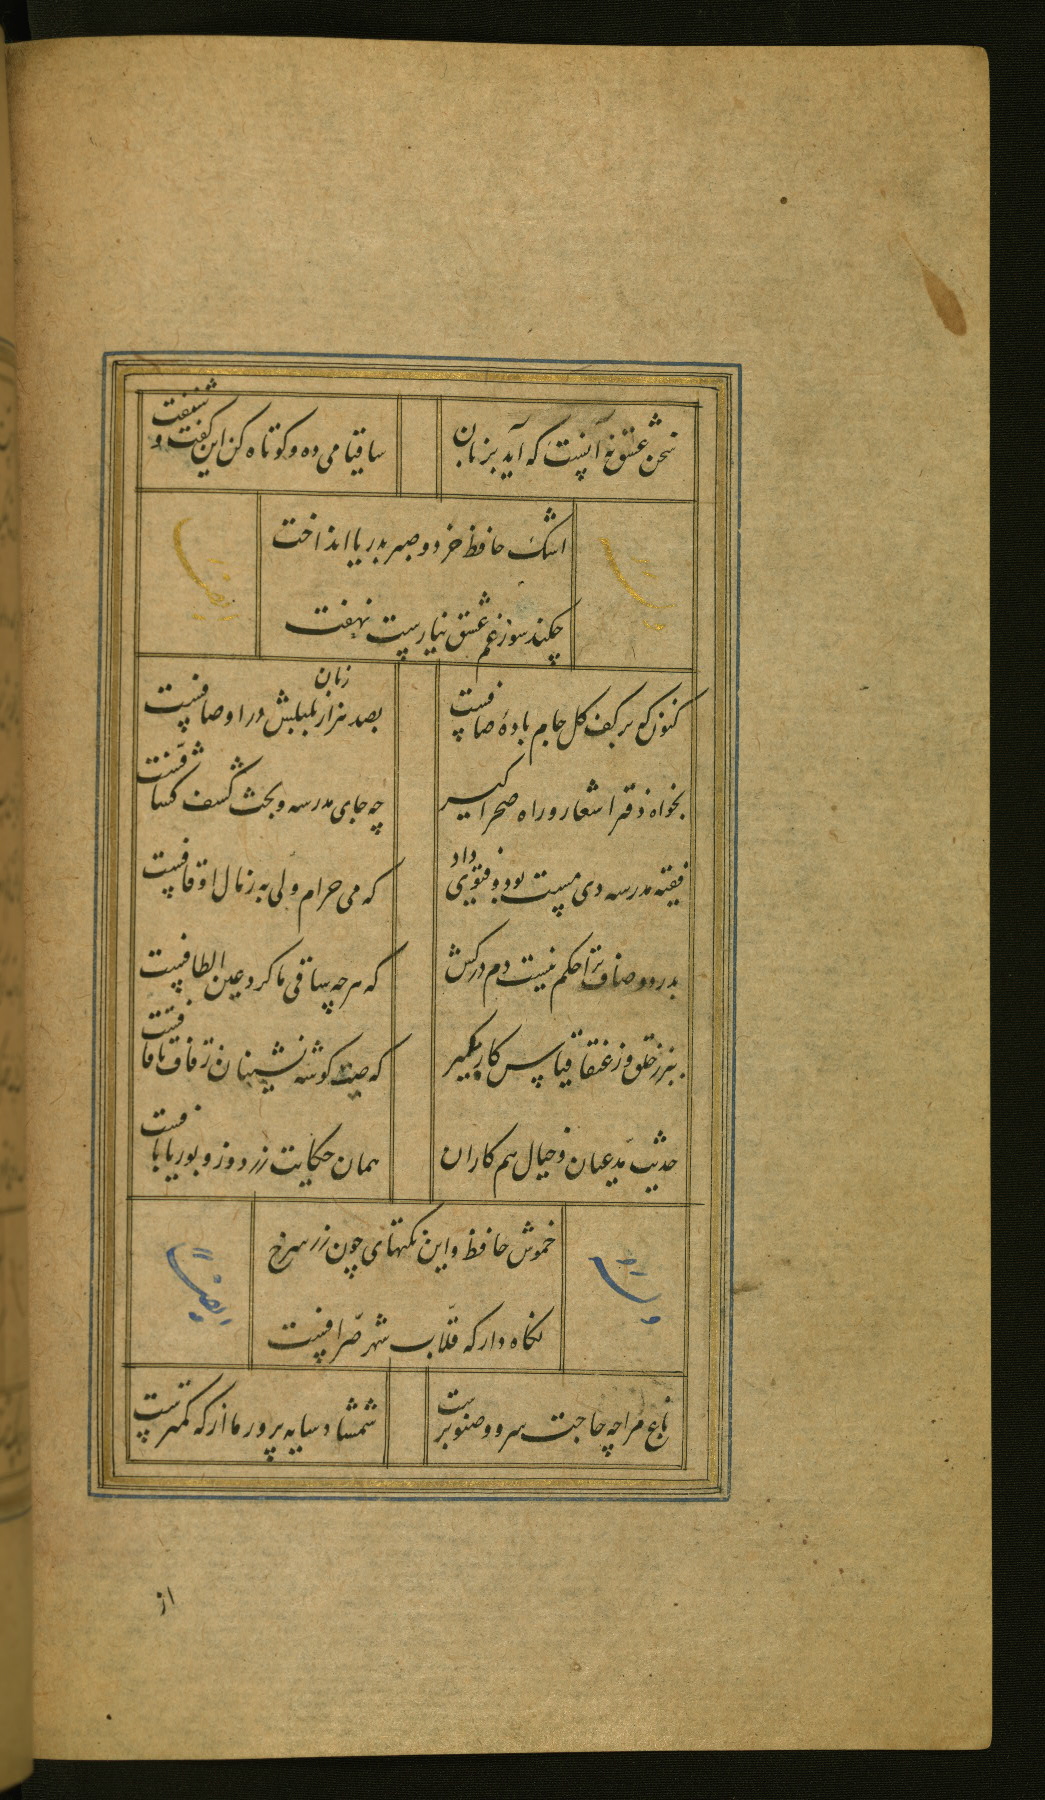 سخن عشق نه آنست که آید بزبان
ساقیا می ده و کوتاه کن این گفت و شنفت
اشک حافظ خرد و صبر بدریا انداخت
چکند سوز غم عشق نیارست نهفت
وله
ایضا
کنون که بر کف گل جام باده صافست
بصد هزار زبان بلبلش در اوصافست
بخواه دفتر اشعار و راه صحرا گیر
چه جای مدرسه و بحث کشف کشافست
فقیه مدرسه دی مست بود و فتوی داد
که می حرام ولی به ز مال اوقافست
بدرد و صاف ترا حکم نیست دم درکش
که هرچه ساقی ما کرد عین الطافست
ببر ز خلق و ز عنقا قیاس کار بگیر
که صیت گوشه نشینان ز قاف تا قافست
حدیث مدعیان و خیال هم کاران
همان حکایت زردوز و بوریا بافست
خموش حافظ و این نکتهای چون زر سرخ
نگاه دار که قلاب شهر صرافست
وله
ایضا
باغ مرا چه حاجت سرو و صنوبرست
شمشاد سایه پرور ما از که کمترست
از